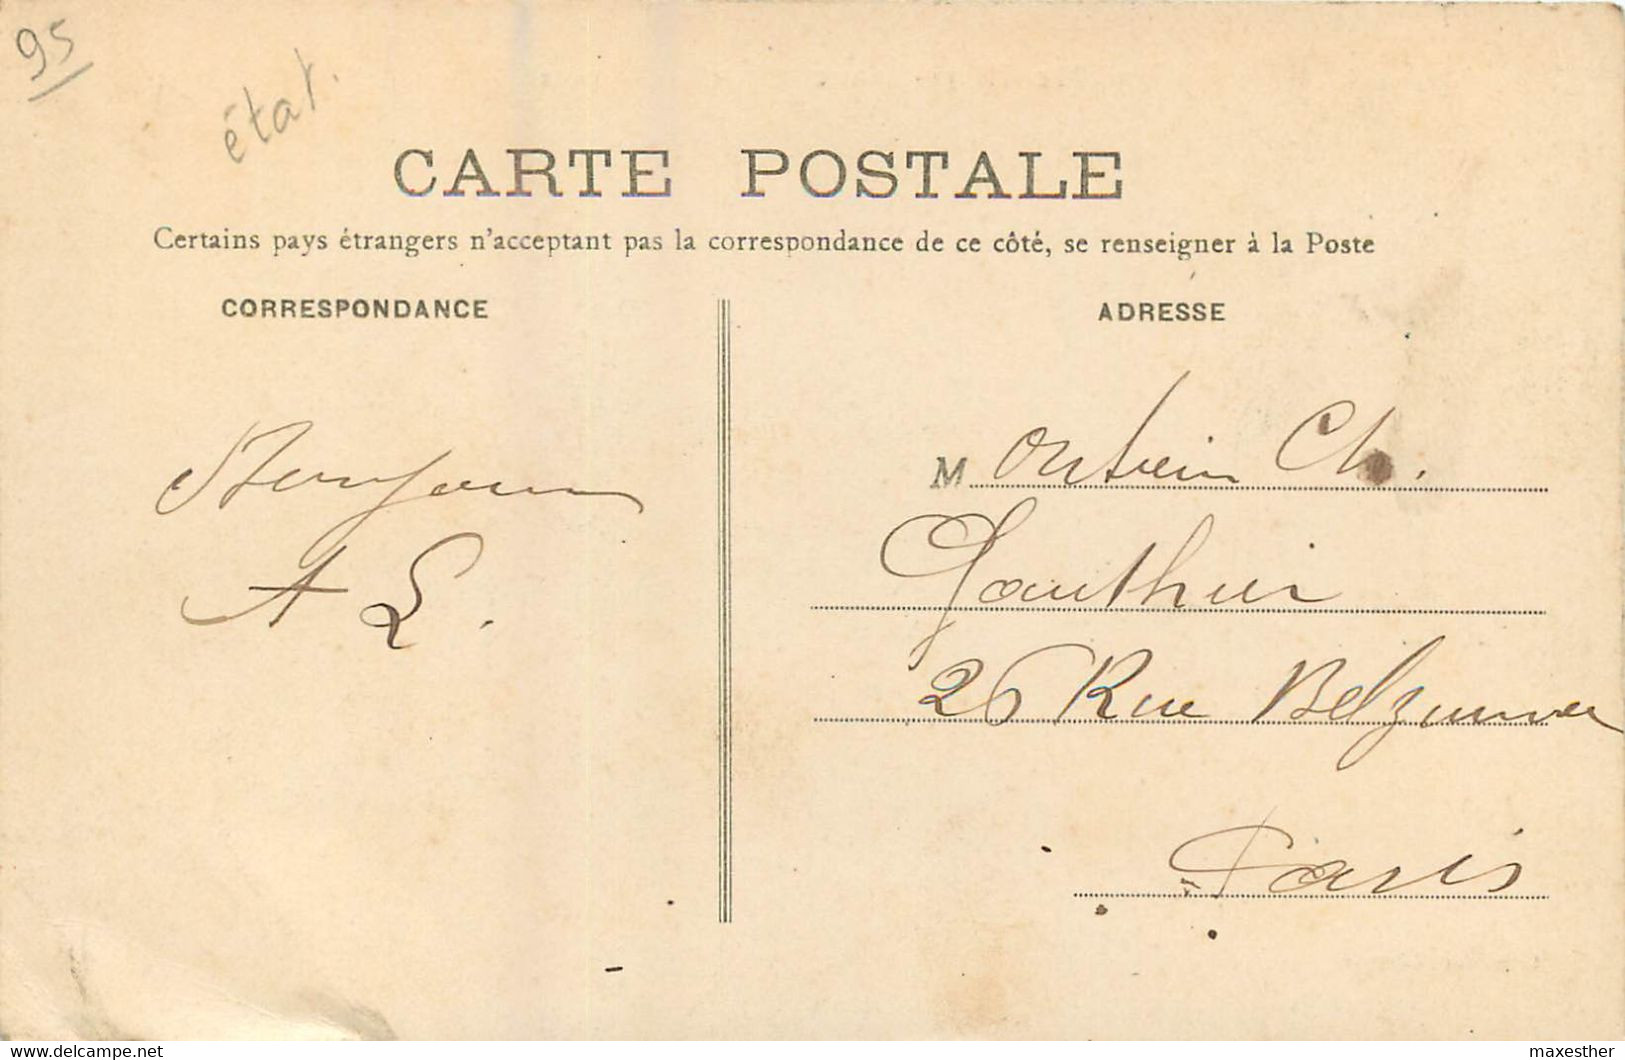 95
état.
CARTE POSTALE
Certains pays étrangers n'acceptant pas la correspondance de ce côté, se renseigner à la Poste
CORRESPONDANCE
Bonjour
A L.
ADRESSE
M Ch.
Gauthier
26 Rue Belzunce
Paris
www.delcampe.net
maxesther